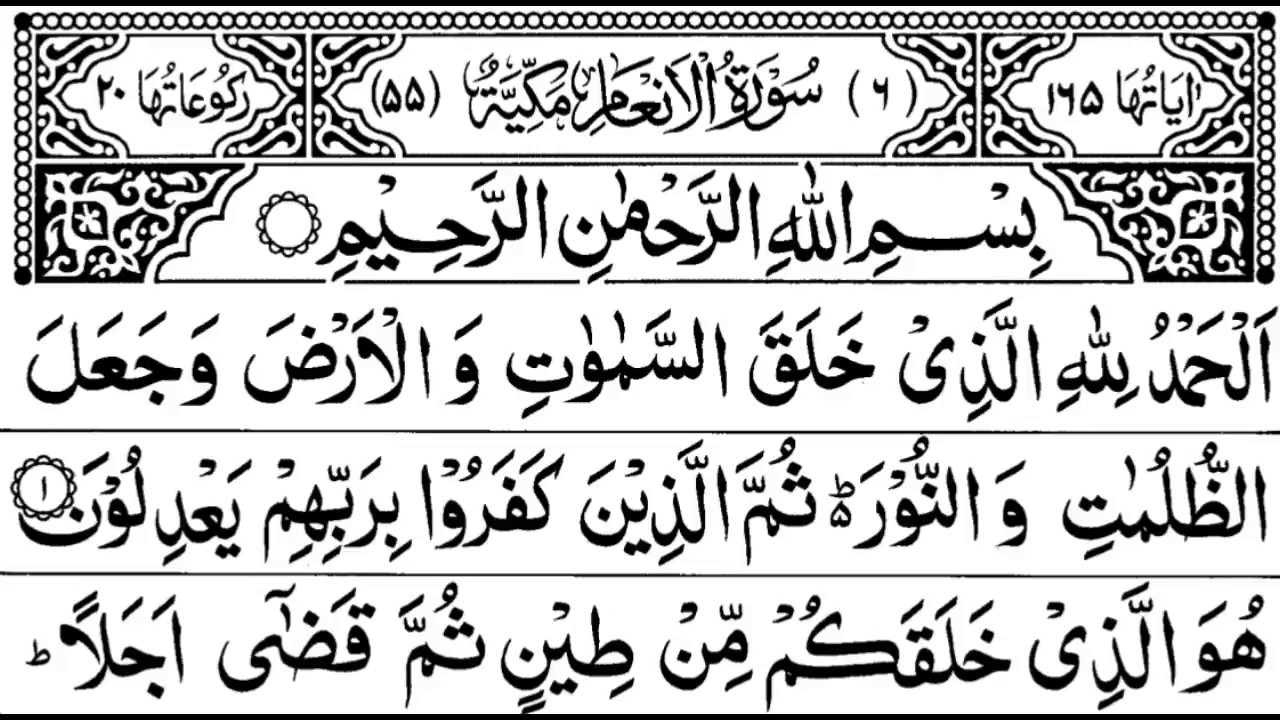 اٰيَاتُهَا ١٦٥ (٦) سُوْرَةُ الْاَنْعَامِ مَكِّيَّةٌ (٥٥) رُكُوْعَاتُهَا ٢٠
بِسْمِ اللّٰهِ الرَّحْمٰنِ الرَّحِيْمِ
اَلْحَمْدُ لِلّٰهِ الَّذِىْ خَلَقَ السَّمٰوٰتِ وَ الْاَرْضَ وَ جَعَلَ
الظُّلُمٰتِ وَ النُّوْرَ ؕ۬ ثُمَّ الَّذِيْنَ كَفَرُوْا بِرَبِّهِمْ يَعْدِلُوْنَ ١
هُوَ الَّذِىْ خَلَقَكُمْ مِّنْ طِيْنٍ ثُمَّ قَضٰٓى اَجَلًا ؕ